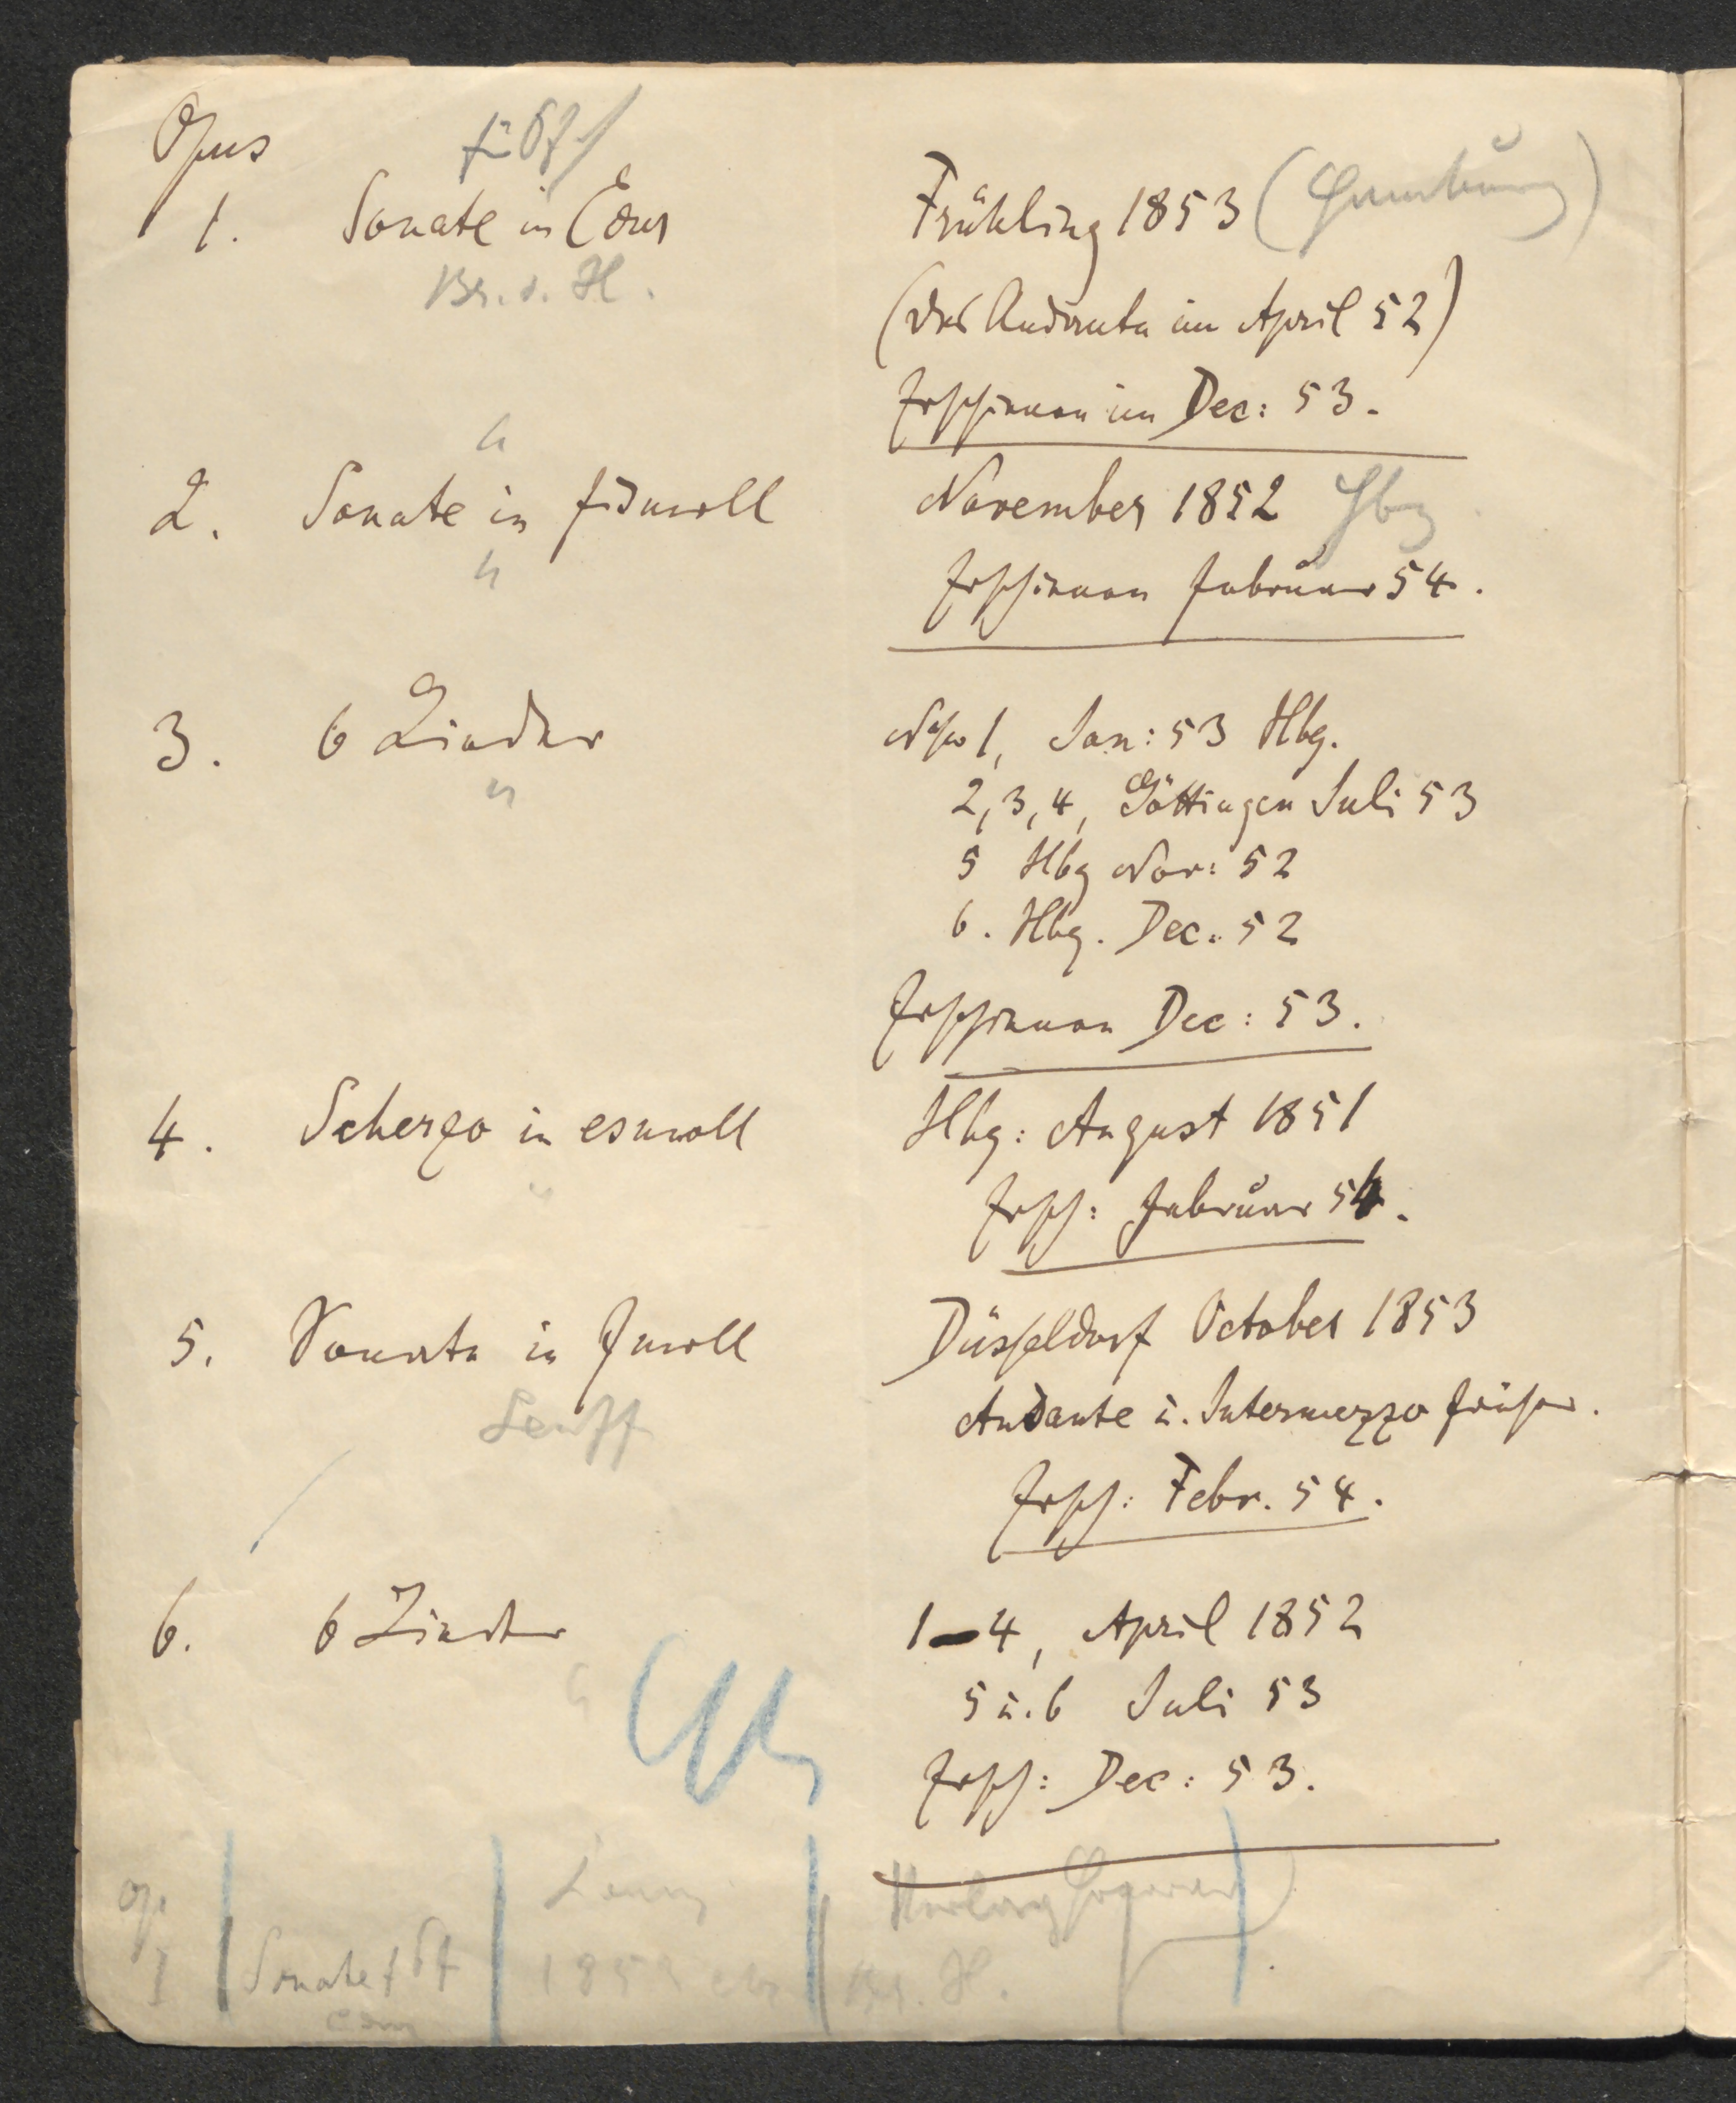 Opus
für Pf
1. Sonate in Cdur Frühling 1853 (Hamburg)
Br. u. H. (das Andante im April 52)
Erschienen im Dec: 53.
"
2. Sonate in fismoll November 1852 Hbg
" Erschienen Februar 54.
3. 6 Lieder No 1, Jan: 53 Hbg.
" 2, 3, 4, Göttingen Juli 53
5 Hbg Nov: 52
6. Hbg. Dec: 52
Erschienen Dec: 53.
4. Scherzo in esmoll Hbg: August 1851
" Ersch: Februar 54.
5. Sonate in Fmoll Düsseldorf October 1853
Senff Andante u. Intermezzo früher.
Ersch: Febr. 54.
6. 6 Lieder 1–4, April 1852
" 5 u. 6 Juli 53
Ersch: Dec: 53.
op. Verlag
1 Sonate f Pf 185 Br. H.
Cdur